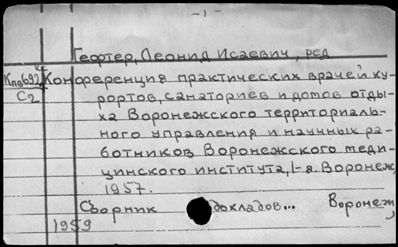 -1-
Гефтер, Леонид Исаевич, ред
Кпв692 Конференция практических врачей ку-
С2 рортов, санаториев и домов отды-
ха Воронежского территориаль-
ного управления и научных ра-
ботников Воронежского меди-
цинского института, 1-я. Воронеж,
1957.
Сборник докладов... Воронеж,
1959